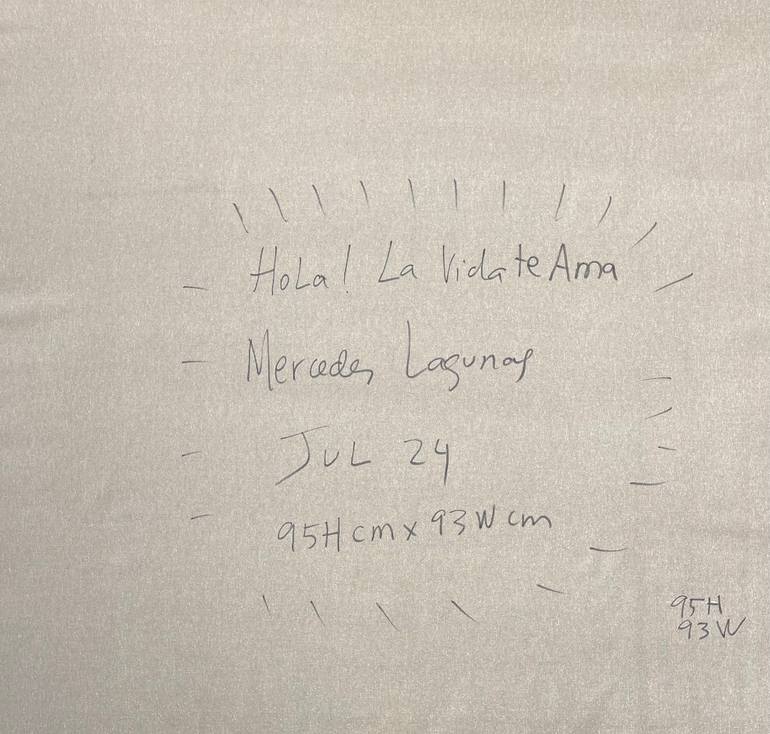 HoLa! La Vida te Ama
Mercedes Lagunas
JUL 24
95H cm x 93 W cm
95H
93 W